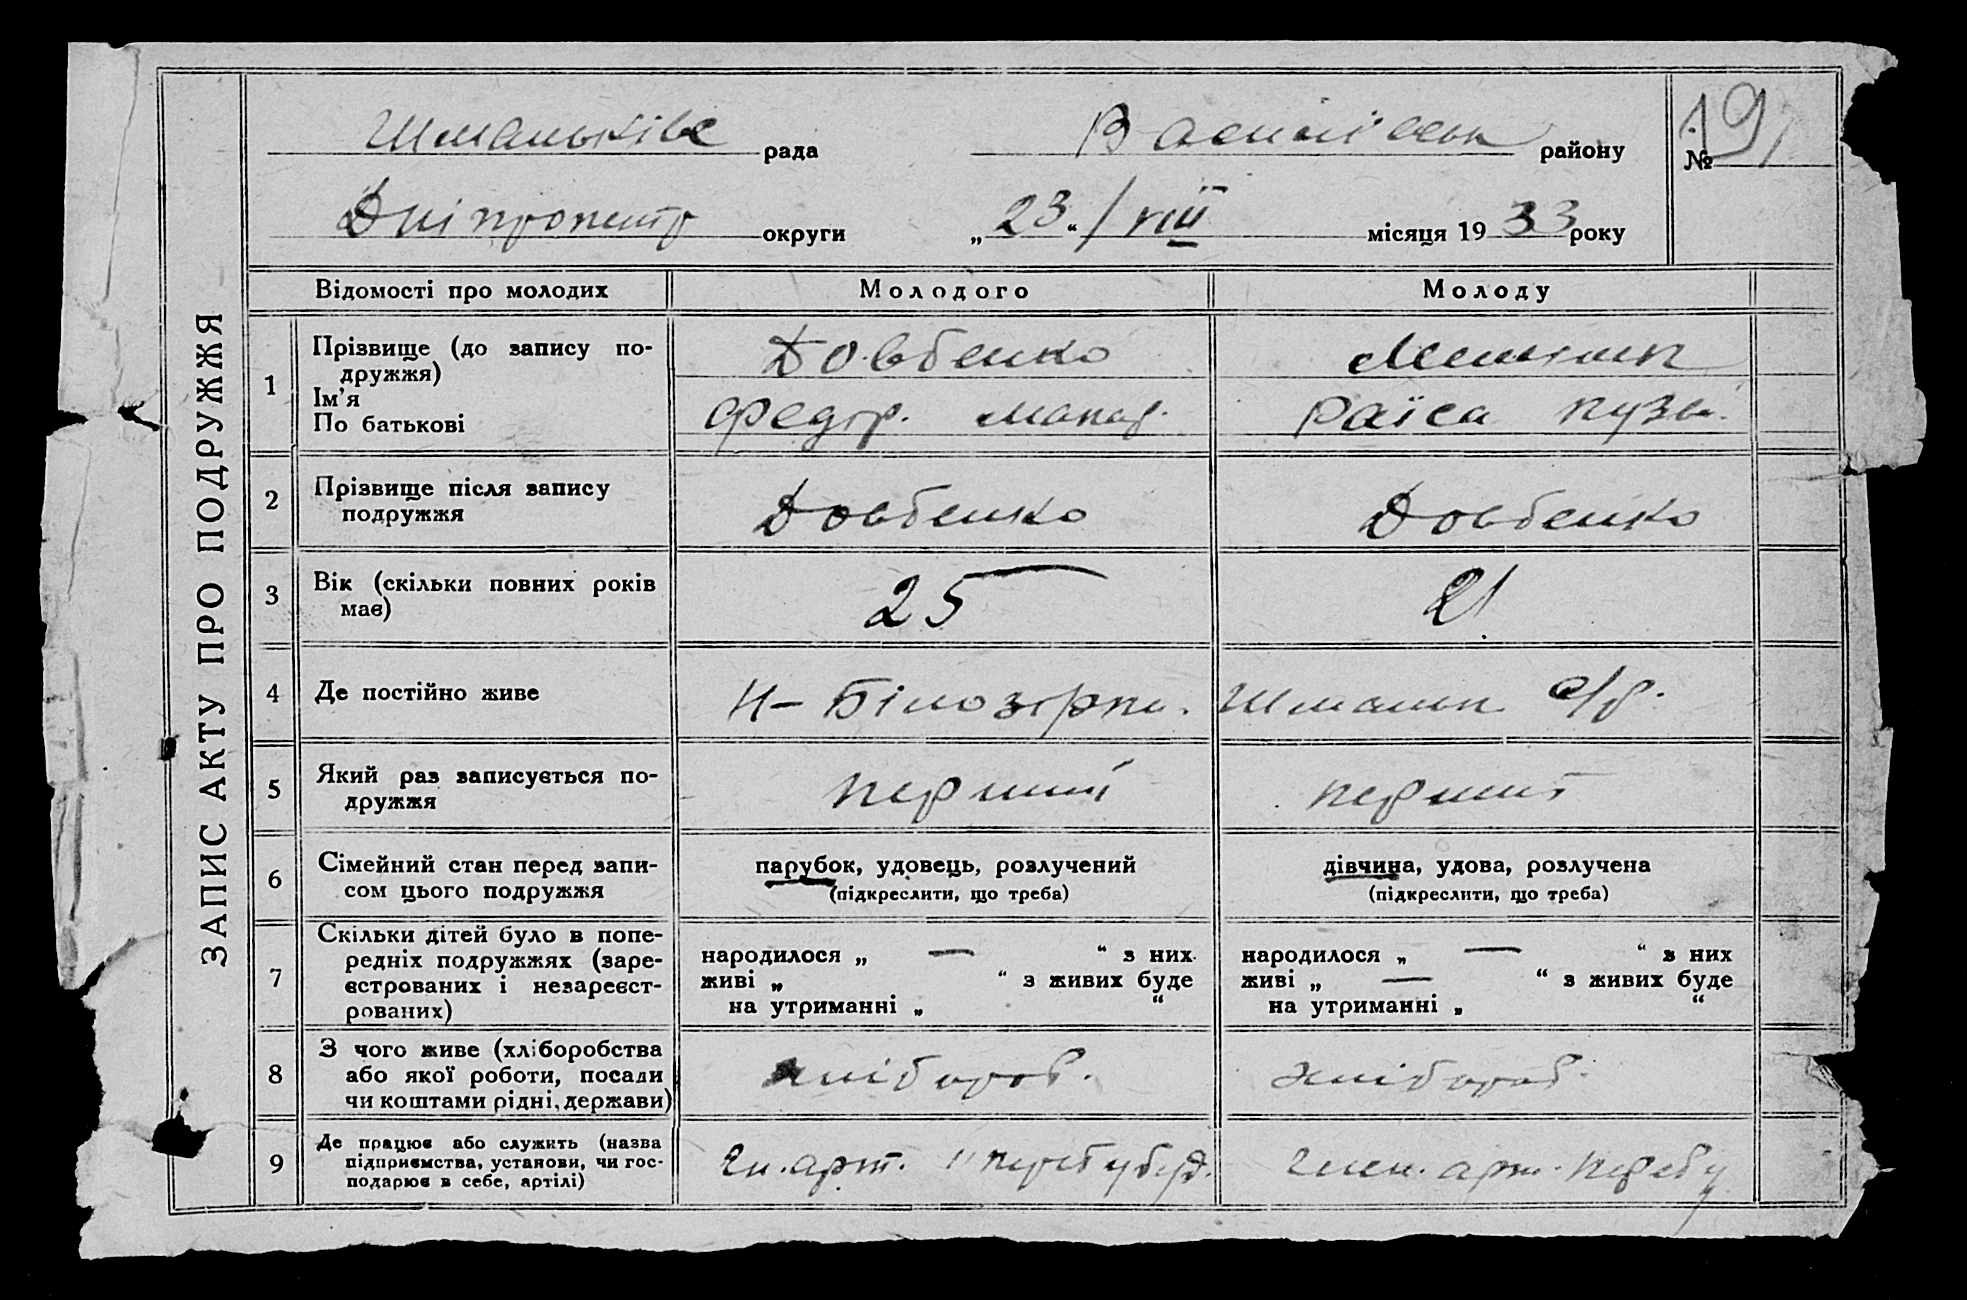 ЗАПИС АКТУ ПРО ПОДРУЖЖЯ
Шмальківс рада Василівськ району № 19
Дніпропетр округи „23“/VIII місяця 1933 року
Відомості про молодих Молодого Молоду
1 Прізвище (до запису по-
дружжя) Довбенко
Ім’я
По батькові Федір. Макар. Раїса Кузьм.
2 Прізвище після запису
подружжя Довбенко Довбенко
3 Вік (скільки повних років
має) 25 21
4 Де постійно живе Н-Білозірк. Шмальк с/р.
5 Який раз записується по-
дружжя перший перший
6 Сімейний стан перед запи-
сом цього подружжя
парубок, удовець, розлучений
(підкреслити, що треба)
дівчина, удова, розлучена
(підкреслити, що треба)
7 Скільки дітей було в попе-
редніх подружжях (заре-
єстрованих і незареєст-
рованих)
народилося „ — “ з них
живі „ “ з живих буде
на утриманні „ “
народилося „ — “ з них
живі „ — “ з живих буде
на утриманні „ “
8 З чого живе (хліборобства
або якої роботи, посади
чи коштами рідні, держави)
хлібороб. хлібороб.
9 Де працює або служить (назва
підприємства, установи, чи гос-
подарює в себе, артілі)
Чл. арт. член. арт.